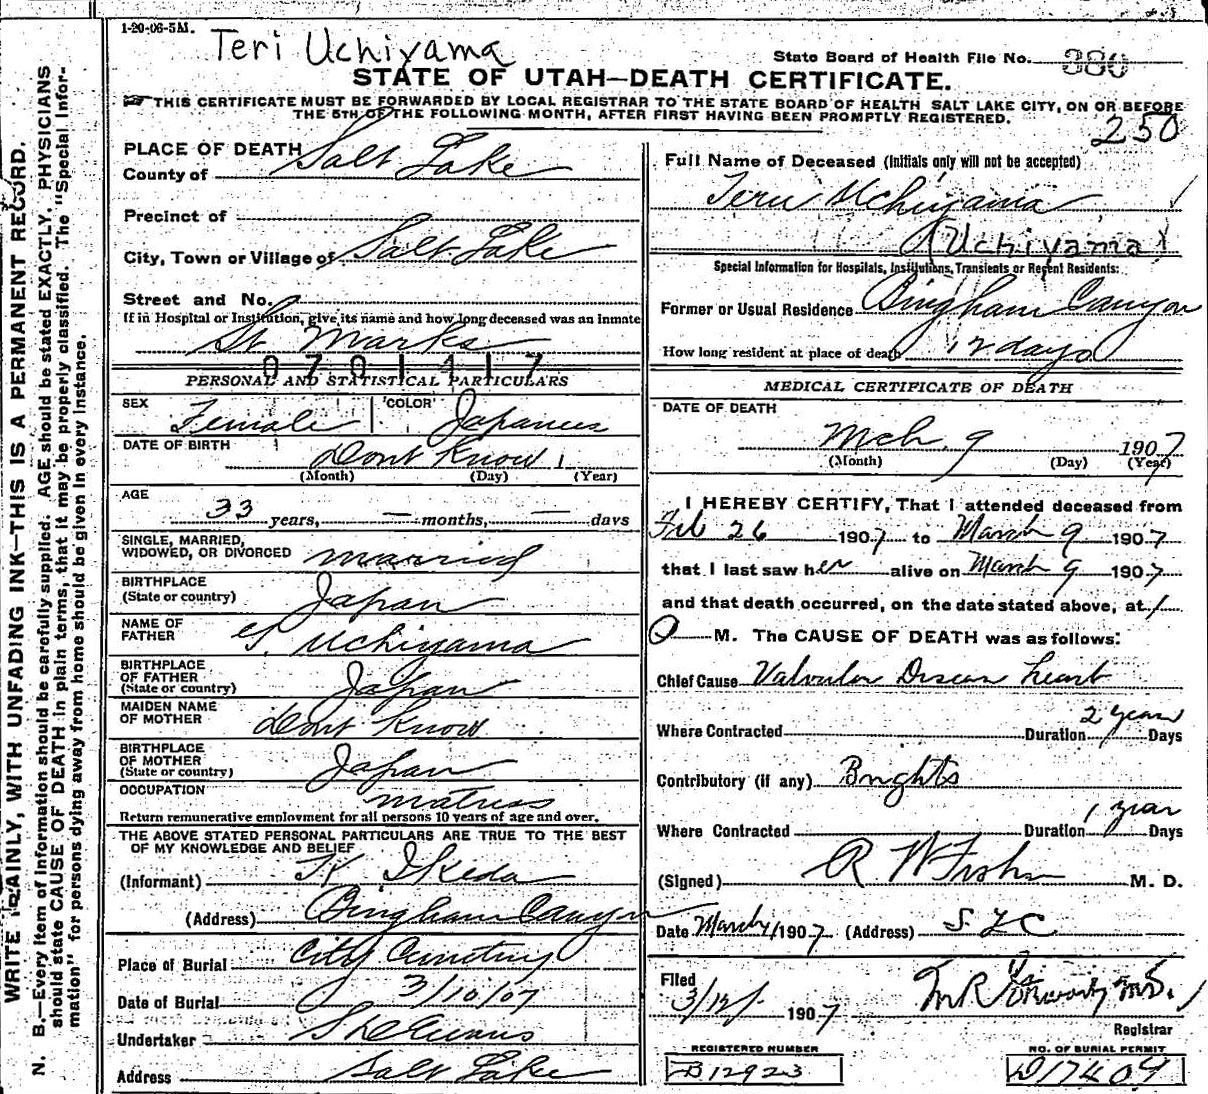 1-20-06-5M.
Teri Uchiyama
State Board of Health File No. 380
STATE OF UTAH—DEATH CERTIFICATE.
THIS CERTIFICATE MUST BE FORWARDED BY LOCAL REGISTRAR TO THE STATE BOARD OF HEALTH SALT LAKE CITY, ON OR BEFORE
THE 5TH OF THE FOLLOWING MONTH, AFTER FIRST HAVING BEEN PROMPTLY REGISTERED.
250
WRITE PLAINLY, WITH UNFADING INK—THIS IS A PERMANENT RECORD.
N. B.—Every item of information should be carefully supplied. AGE should be stated EXACTLY. PHYSICIANS
should state CAUSE OF DEATH in plain terms, that it may be properly classified. The "Special Infor-
mation" for persons dying away from home should be given in every instance.
PLACE OF DEATH
County of Salt Lake
Precinct of
City, Town or Village of Salt Lake
Street and No.
If in Hospital or Institution, give its name and how long deceased was an inmate
St Marks
0701417
PERSONAL AND STATISTICAL PARTICULARS
SEX Female COLOR Japanese
DATE OF BIRTH Dont Know 1
(Month) (Day) (Year)
AGE
33 years, — months, — days
SINGLE, MARRIED,
WIDOWED, OR DIVORCED married
BIRTHPLACE
(State or country) Japan
NAME OF
FATHER Uchiyama
BIRTHPLACE
OF FATHER
(State or country) Japan
MAIDEN NAME
OF MOTHER Dont Know
BIRTHPLACE
OF MOTHER
(State or country) Japan
OCCUPATION matress
Return remunerative employment for all persons 10 years of age and over.
THE ABOVE STATED PERSONAL PARTICULARS ARE TRUE TO THE BEST
OF MY KNOWLEDGE AND BELIEF
(Informant) K Ikeda
(Address) Bingham Canyon
Place of Burial City Cemetery
Date of Burial 3/10/07
Undertaker
Address Salt Lake
Full Name of Deceased (Initials only will not be accepted)
Teru Uchiyama
(Uchiyama)
Special Information for Hospitals, Institutions, Transients or Recent Residents:
Former or Usual Residence Bingham Canyon
How long resident at place of death 12 days
MEDICAL CERTIFICATE OF DEATH
DATE OF DEATH
Mch 9 1907
(Month) (Day) (Year)
I HEREBY CERTIFY, That I attended deceased from
Feb 26 1907 to March 9 1907
that I last saw her alive on March 9 1907
and that death occurred, on the date stated above, at 1
P M. The CAUSE OF DEATH was as follows:
Chief Cause Valvular Disease heart
2 years
Where Contracted Duration Days
Contributory (if any) Brights
1 year
Where Contracted Duration Days
(Signed) R W Fisher M. D.
Date March 1907 (Address) S L C
Filed
3/12/ 1907
Registrar
REGISTERED NUMBER
B12923
NO. OF BURIAL PERMIT
D17407